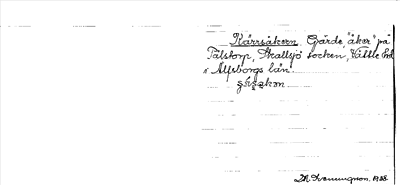 Kärrsåkern Gärde, "åker" på
Tålstorp, Skallsjö socken, Vättle hd
Älfsborgs län.
1938